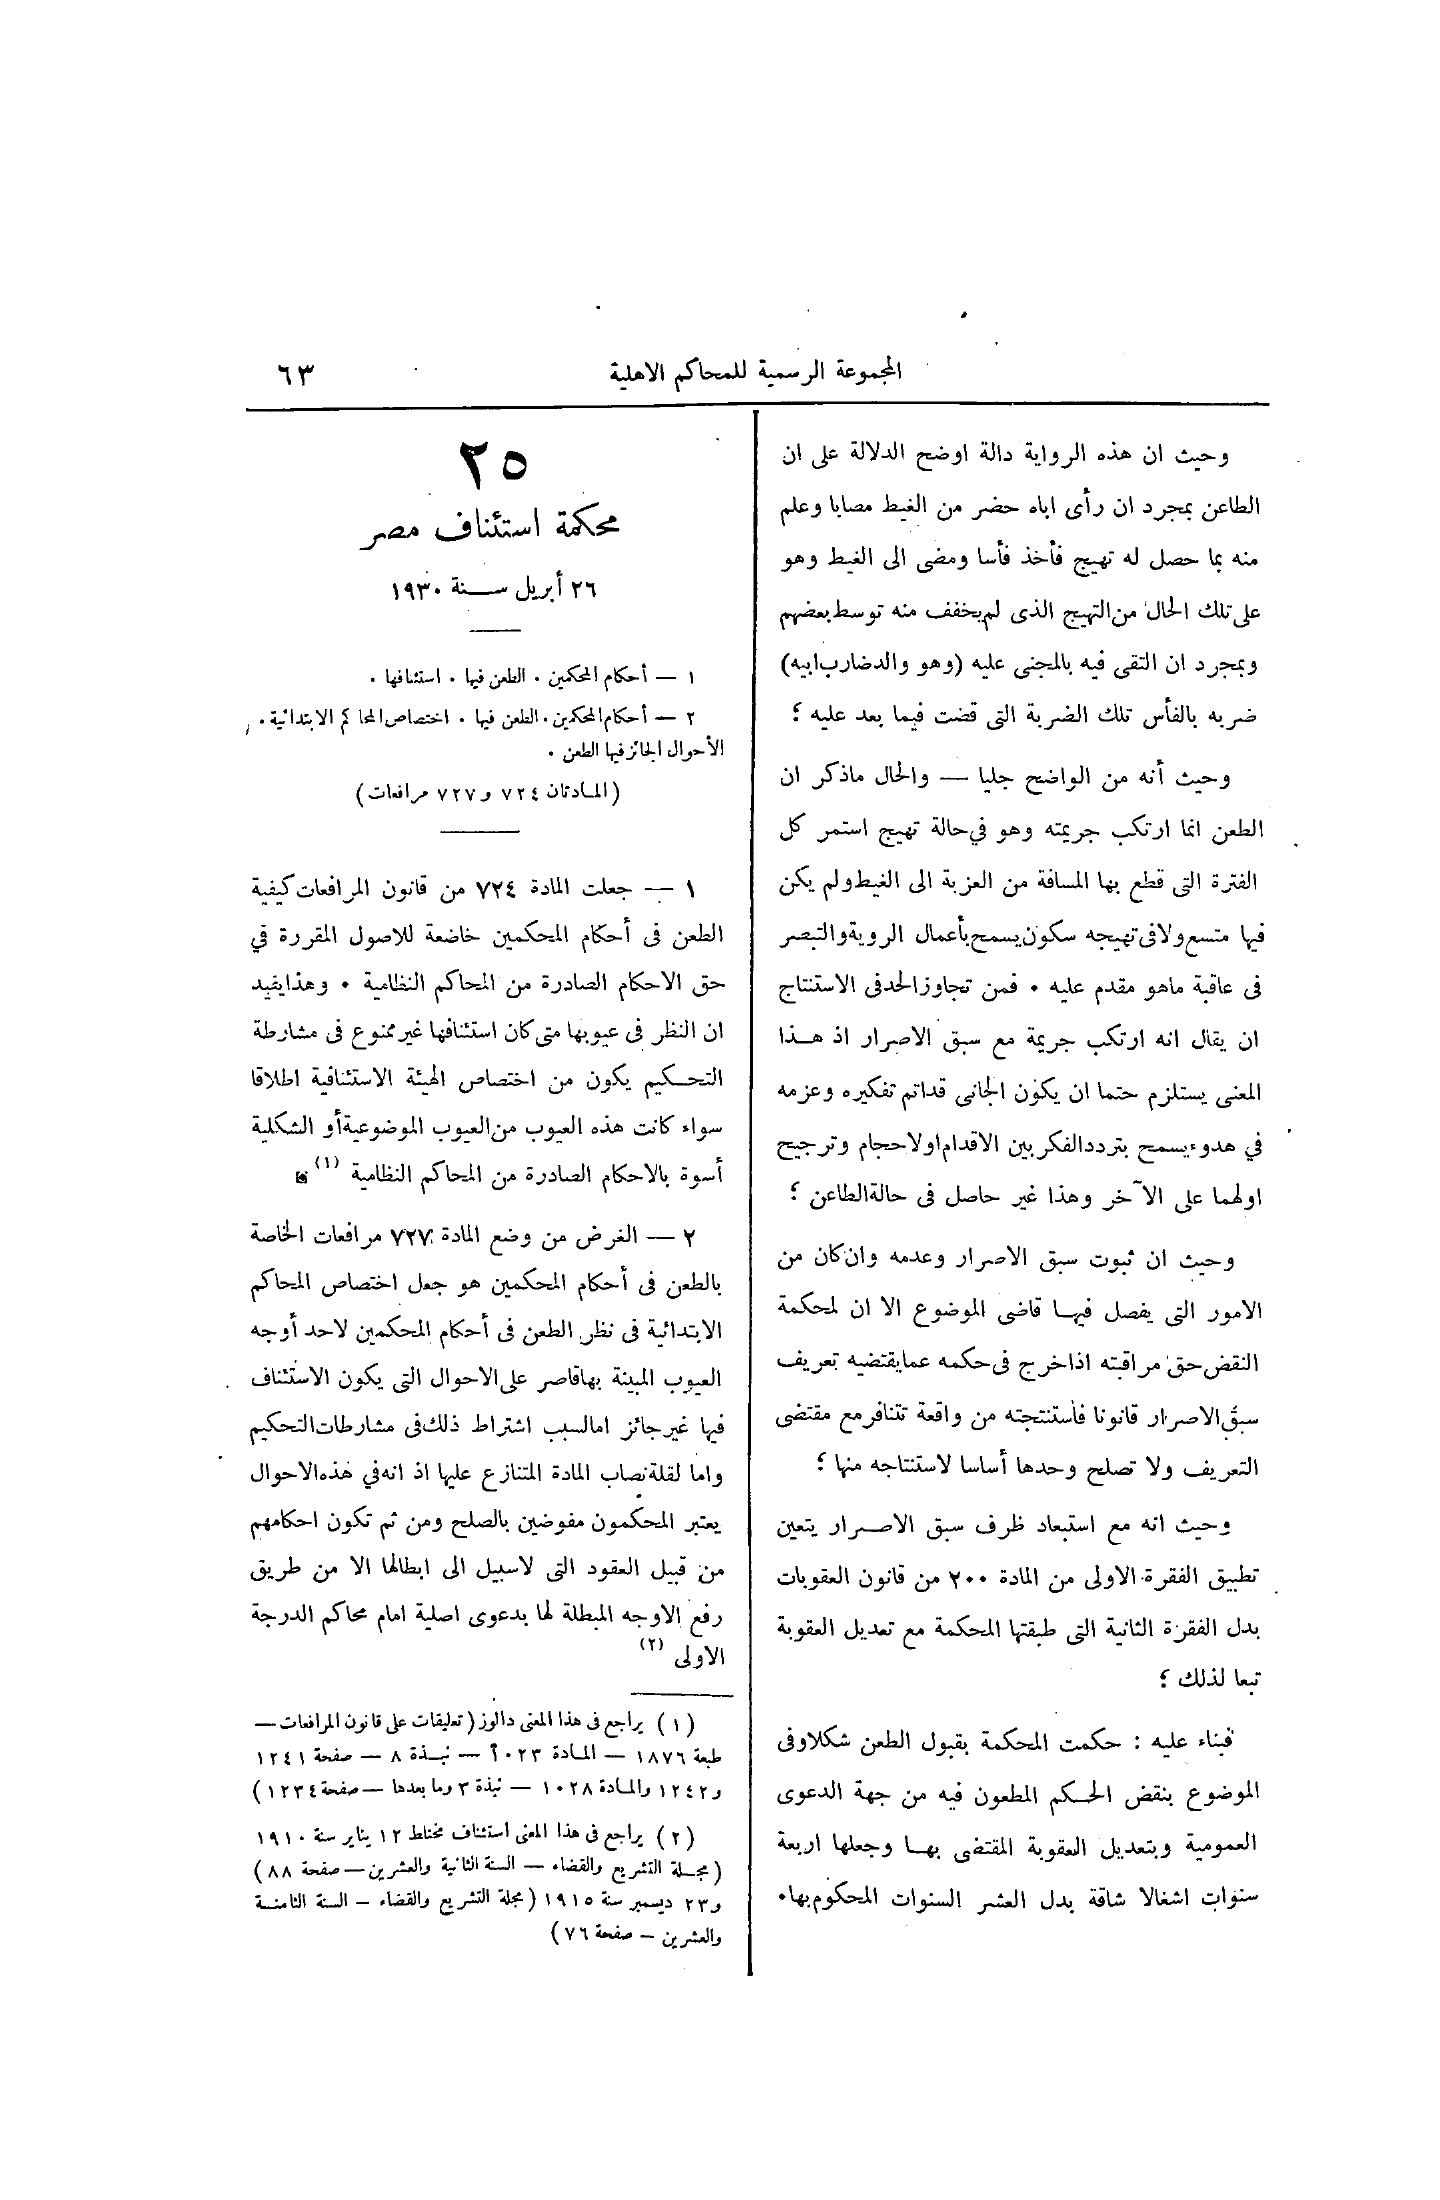 المجموعة الرسمية للمحاكم الاهلية
٦٣
وحيث ان هذه الرواية دالة اوضح الدلالة على ان
الطاعن بمجرد ان رأى اباه حضر من الغيط مصابا وعلم
منه بما حصل له تهيج فأخذ فأسا ومضى الى الغيط وهو
على تلك الحال من التهيج الذى لم يخفف منه توسط بعضهم
وبمجرد ان التقى فيه بالمجنى عليه (وهو والد ضارب ابيه)
ضربه بالفأس تلك الضربة التى قضت فيما بعد عليه ؛
وحيث أنه من الواضح جليا — والحال ماذكر ان
الطعن انما ارتكب جريمته وهو في حالة تهيج استمر كل
الفترة التى قطع بها المسافة من العزبة الى الغيط ولم يكن
فيها متسع ولافى تهيجه سكون يسمح بأعمال الروية والتبصر
فى عاقبة ماهو مقدم عليه . فمن تجاوز الحد فى الاستنتاج
ان يقال انه ارتكب جريمة مع سبق الاصرار اذ هذا
المعنى يستلزم حتما ان يكون الجانى قد اتم تفكيره وعزمه
في هدوء يسمح بتردد الفكر بين الاقدام او لاحجام وترجيح
اولهما على الآخر وهذا غير حاصل فى حالة الطاعن ؛
وحيث ان ثبوت سبق الاصرار وعدمه وان كان من
الامور التى يفصل فيها قاضى الموضوع الا ان لمحكمة
النقض حق مراقبته اذا خرج فى حكمه عما يقتضيه تعريف
سبق الاصرار قانونا فأستنتجته من واقعة تتنافر مع مقتضى
التعريف ولا تصلح وحدها أساسا لاستنتاجه منها ؛
وحيث انه مع استبعاد ظرف سبق الاصرار يتعين
تطبيق الفقرة الاولى من المادة ٢٠٠ من قانون العقوبات
بدل الفقرة الثانية التى طبقتها المحكمة مع تعديل العقوبة
تبعا لذلك ؛
فبناء عليه : حكمت المحكمة بقبول الطعن شكلا وفى
الموضوع بنقض الحكم المطعون فيه من جهة الدعوى
العمومية وبتعديل العقوبة المقتضى بها وجعلها اربعة
سنوات اشغالا شاقة بدل العشر السنوات المحكوم بها .
٢٥
محكمة استئناف مصر
٢٦ أبريل سنة ١٩٣٠
١ — أحكام المحكمين . الطعن فيها . استئنافها .
٢ — أحكام المحكمين . الطعن فيها . اختصاص المحاكم الابتدائية .
الأحوال الجائز فيها الطعن .
(المادتان ٧٢٤ و ٧٢٧ مرافعات)
١ — جعلت المادة ٧٢٤ من قانون المرافعات كيفية
الطعن فى أحكام المحكمين خاضعة للاصول المقررة في
حق الاحكام الصادرة من المحاكم النظامية . وهذا يفيد
ان النظر فى عيوبها متى كان استئنافها غير ممنوع فى مشارطة
التحكيم يكون من اختصاص الهيئة الاستئنافية اطلاقا
سواء كانت هذه العيوب من العيوب الموضوعية أو الشكلية
أسوة بالاحكام الصادرة من المحاكم النظامية (١)
٢ — الغرض من وضع المادة ٧٢٧ مرافعات الخاصة
بالطعن فى أحكام المحكمين هو جعل اختصاص المحاكم
الابتدائية فى نظر الطعن فى أحكام المحكمين لاحد أوجه
العيوب المبينة بها قاصر على الاحوال التى يكون الاستئناف
فيها غير جائز اما لسبب اشتراط ذلك فى مشارطات التحكيم
واما لقلة نصاب المادة المتنازع عليها اذ انه في هذه الاحوال
يعتبر المحكمون مفوضين بالصلح ومن ثم تكون احكامهم
من قبيل العقود التى لاسبيل الى ابطالها الا من طريق
رفع الاوجه المبطلة لها بدعوى اصلية امام محاكم الدرجة
الاولى (٢)
(١) يراجع فى هذا المعنى دالوز (تعليقات على قانون المرافعات —
طبعة ١٨٧٦ — المادة ١٠٢٣ — نبذة ٨ — صفحة ١٢٤١
و ١٢٤٢ والمادة ١٠٢٨ — نبذة ٣ وما بعدها — صفحة ١٢٣٤)
(٢) يراجع فى هذا المعنى استئناف مختلط ١٢ يناير سنة ١٩١٠
(مجلة التشريع والقضاء — السنة الثانية والعشرين — صفحة ٨٨)
و ٢٣ ديسمبر سنة ١٩١٥ (مجلة التشريع والقضاء — السنة الثامنة
والعشرين — صفحة ٧٦)